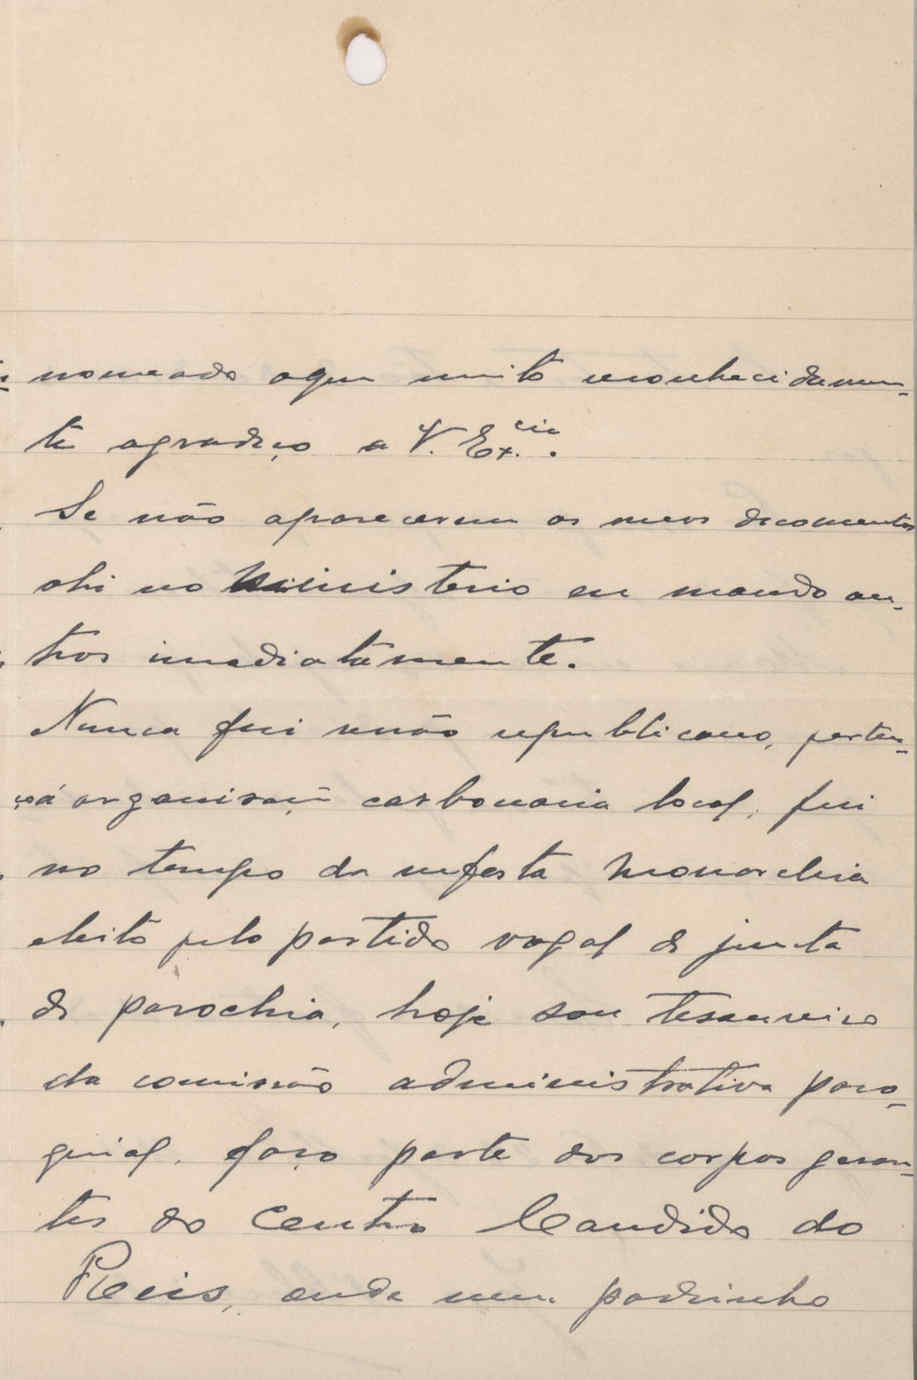 nomeado o que muito reconhecidamen-
te agradeço a V. Ex.cia.
Se não aparecerem os meus documentos
ahi no Ministerio eu mando ou-
tros imediatamente.
Nunca fui senão republicano, perten-
ço á organisação carbonaria local, fui
no tempo da nefasta Monarchia
eleito pelo partido vogal de junta
de parochia, hoje sou tesoureiro
da comissão administrativa paro-
quial, faço parte dos corpos geren-
tes do Centro Candido do
Reis, onde meu padrinho